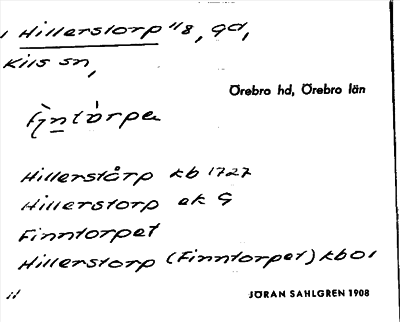 Hillerstorp 1/8, gd,
Kils sn,
Örebro hd, Örebro län
Fìntòrpa
Hillerstårp kb 1727
Hillerstorp ek G
Finntorpet
Hillerstorp (Finntorpet) kb01
JÖRAN SAHLGREN 1908